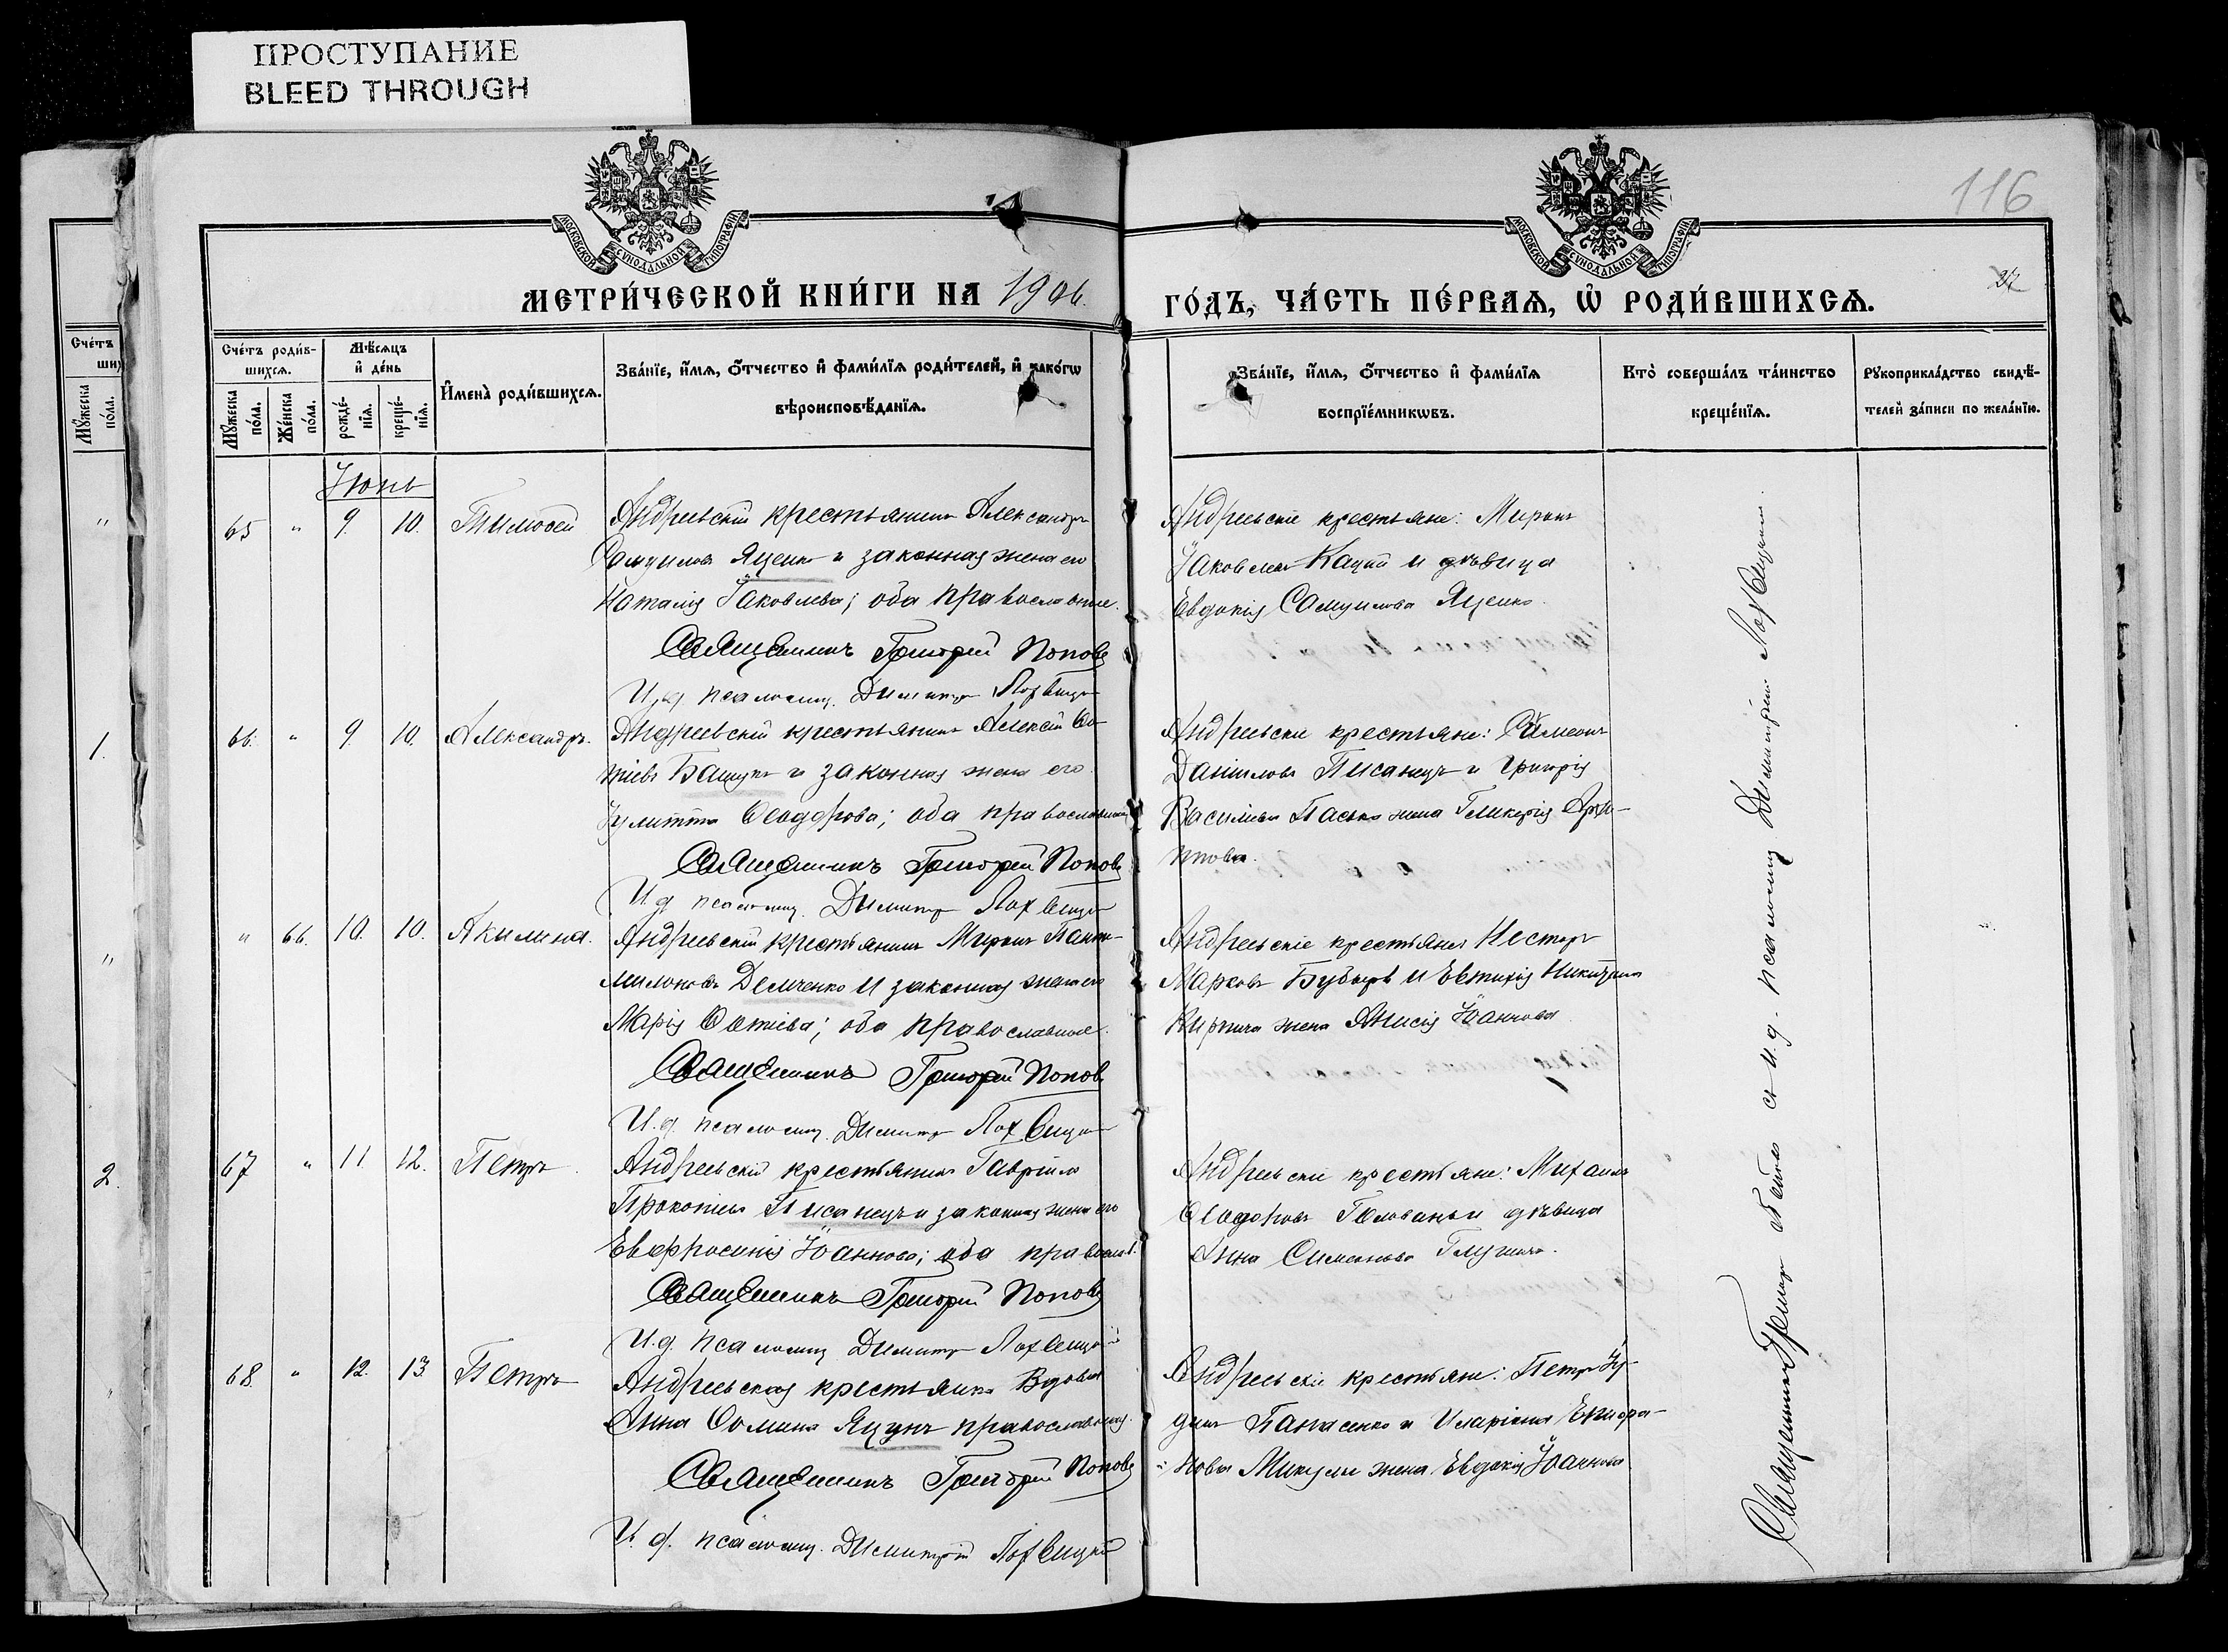 ПРОСТУПАНИЕ
BLEED THROUGH
116
МОСКОВСКОЙ СѴНОДАЛЬНОЙ ТИПОГРАФІИ
МОСКОВСКОЙ СѴНОДАЛЬНОЙ ТИПОГРАФІИ
МЕТРИ́ЧЕСКОЙ КНИ́ГИ НА 1906.
ГО́ДЪ, ЧА́СТЬ ПЕ́РВАЯ, Ѡ҆ РОДИ́ВШИХСЯ.
Сче́тъ роди́в-
шихся.
Мꙋ́жеска по́ла.
Же́нска по́ла.
Мѣ́сяцъ и҆ де́нь
рожде́-нїя.
креще́-нїя.
И҆мена̀ роди́вшихся.
Зва́нїе, и҆́мя, ѻ҆́тчество и҆ фами́лїя роди́телей, и҆ како́гѡ
вѣроисповѣ́данїя.
Зва́нїе, и҆́мя, ѻ҆́тчество и҆ фами́лїя
воспрїе́мникѡвъ.
Кто̀ соверша́лъ та́инство
креще́нїя.
Рꙋкоприкла́дство свидѣ́-
телей за́писи по жела́нїю.
Іюнь
65 " 9. 10. Тимоѳей
Андреевскій крестьянинъ Александръ
Самуиловъ Яценко и законная жена его
Наталія Іаковлева; оба православные.
Священникъ Григорій Поповъ
И.д. псаломщ. Димитр Лохвицкій
Андреевскіе крестьяне: Миронъ
Іаковлевъ Кацій и дѣвица
Евдокія Самуилова Яценко.
66. " 9. 10. Александръ.
Андреевскій крестьянинъ Алексѣй Фо-
тіевъ Бащукъ и законная жена его
Іулитта Ѳеодорова; оба православные
Священникъ Григорій Поповъ
И.д. псаломщ. Димитр Лохвицкій
Андреевскіе крестьяне: Симеонъ
Даніиловъ Писанецъ и Григорія
Васильева Пасько жена Гликерія Архи-
ппова.
" 66. 10. 10. Акилина.
Андреевскій крестьянинъ Миронъ Панте-
лимоновъ Демченко и законная жена его
Марія Фотіева; оба православные.
Священникъ Григорій Поповъ
И.д. псаломщ. Димитр Лохвицкій
Андреевскіе крестьяне Несторъ
Марковъ Бубырь и Евтихія Никитина
Кирпича жена Анисія Іоаннова
67 " 11. 12. Петръ
Андреевскій крестьянинъ Гавріилъ
Прокопіевъ Писанецъ и законная жена его
Евфросинія Іоаннова; оба правосл.
Священникъ Григорій Поповъ
И.д. псаломщ Димитр Лохвицкій
Андреевскіе крестьяне: Михаилъ
Ѳеодоровъ Голованъ и дѣвица
Анна Симеонова
68. " 12. 13. Петръ
Андреевская крестьянка Вдова
Анна Ѳомина Яцунъ православная.
Священникъ Григорій Поповъ
И. д. псаломщ. Димитрій Лохвицкій
Андреевскіе крестьяне: Петръ Іу-
динъ Панасенко и Иларіона Епифа-
нова Микулы жена Евдокія Іоаннова
Священникъ съ и.д. псаломщ Димитріемъ Лохвицкимъ.
Сче́тъ
Мꙋ́жеска по́ла.
"
1.
"
2.